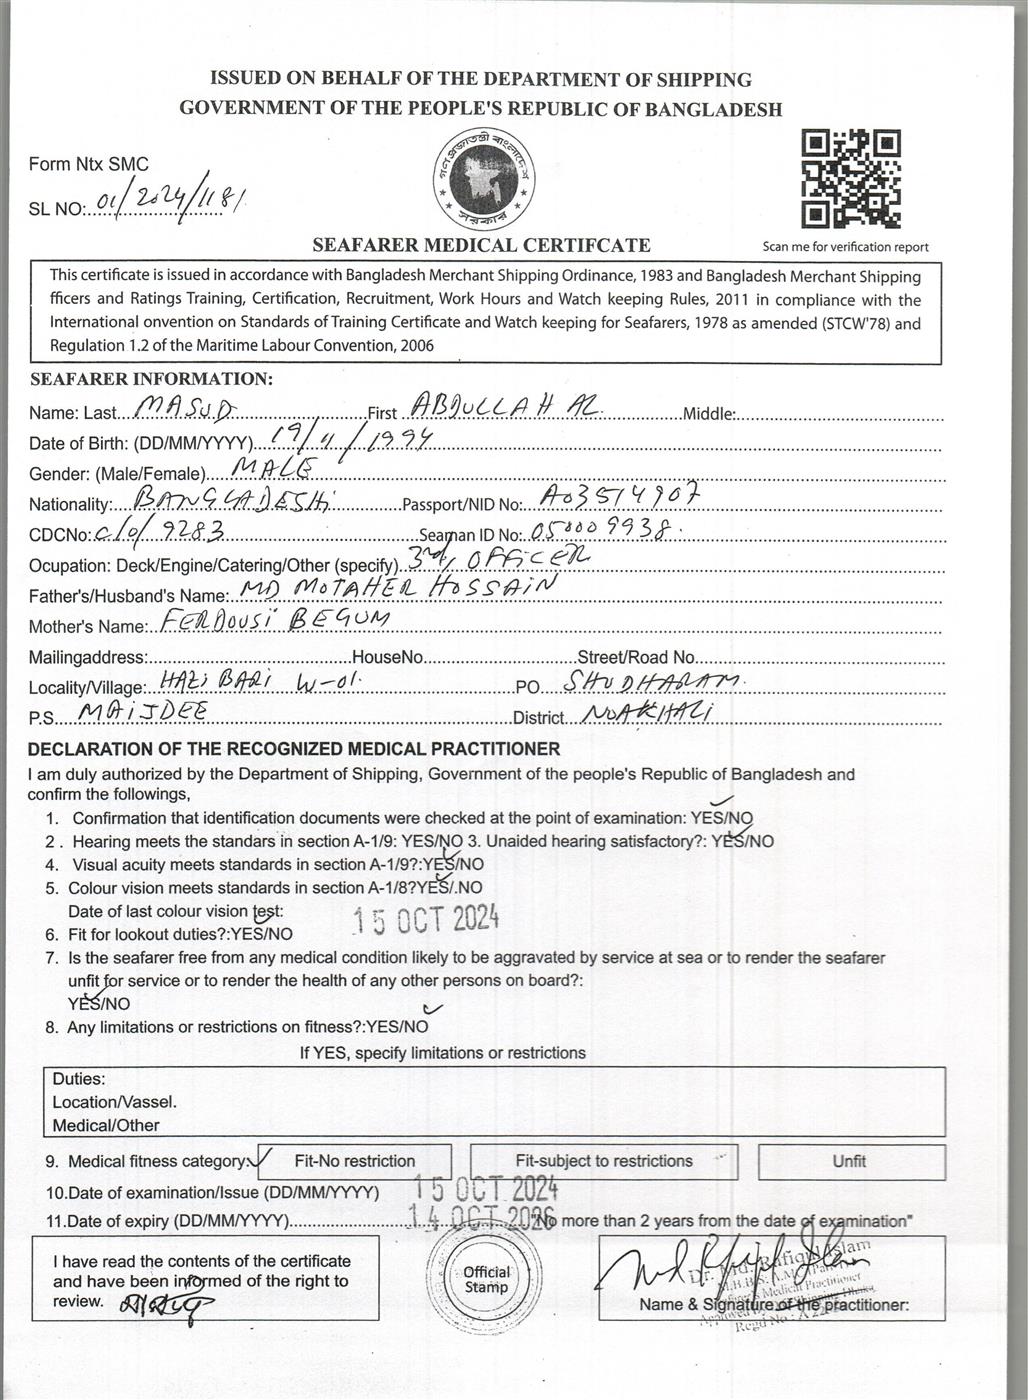 ISSUED ON BEHALF OF THE DEPARTMENT OF SHIPPING
GOVERNMENT OF THE PEOPLE'S REPUBLIC OF BANGLADESH
গণ প্রজাতন্ত্রী বাংলাদেশ
সরকার
Form Ntx SMC
SL NO:..01/2024/1181
SEAFARER MEDICAL CERTIFCATE
Scan me for verification report
This certificate is issued in accordance with Bangladesh Merchant Shipping Ordinance, 1983 and Bangladesh Merchant Shipping
fficers and Ratings Training, Certification, Recruitment, Work Hours and Watch keeping Rules, 2011 in compliance with the
International onvention on Standards of Training Certificate and Watch keeping for Seafarers, 1978 as amended (STCW'78) and
Regulation 1.2 of the Maritime Labour Convention, 2006
SEAFARER INFORMATION:
Name: Last MASUD First ABDULLAH AL Middle:
Date of Birth: (DD/MM/YYYY) 19/11/1994
Gender: (Male/Female) MALE
Nationality: BANGLADESHi Passport/NID No: A03514907
CDCNo: C/O/9283 Seaman ID No: 050009938
Ocupation: Deck/Engine/Catering/Other (specify) 3rd OFFiCER
Father's/Husband's Name: MD MOTAHER HOSSAiN
Mother's Name: FERDOUSi BEGUM
Mailingaddress: HouseNo Street/Road No
Locality/Village: HAZi BARi W-01. PO SHUDHARAM.
P.S MAiJDEE District NOAKHALi
DECLARATION OF THE RECOGNIZED MEDICAL PRACTITIONER
I am duly authorized by the Department of Shipping, Government of the people's Republic of Bangladesh and
confirm the followings,
1. Confirmation that identification documents were checked at the point of examination: YES/NO
2 . Hearing meets the standars in section A-1/9: YES/NO 3. Unaided hearing satisfactory?: YES/NO
4. Visual acuity meets standards in section A-1/9?:YES/NO
5. Colour vision meets standards in section A-1/8?YES/.NO
Date of last colour vision test: 15 OCT 2024
6. Fit for lookout duties?:YES/NO
7. Is the seafarer free from any medical condition likely to be aggravated by service at sea or to render the seafarer
unfit for service or to render the health of any other persons on board?:
YES/NO
8. Any limitations or restrictions on fitness?:YES/NO
If YES, specify limitations or restrictions
Duties:
Location/Vassel.
Medical/Other
9. Medical fitness category: Fit-No restriction Fit-subject to restrictions Unfit
10.Date of examination/Issue (DD/MM/YYYY) 15 OCT 2024
11.Date of expiry (DD/MM/YYYY) 14 OCT 2026 "No more than 2 years from the date of examination"
I have read the contents of the certificate
and have been informed of the right to
review.
Official
Stamp
Dr. Md. Rafiqul Islam
Name & Signature of the practitioner: